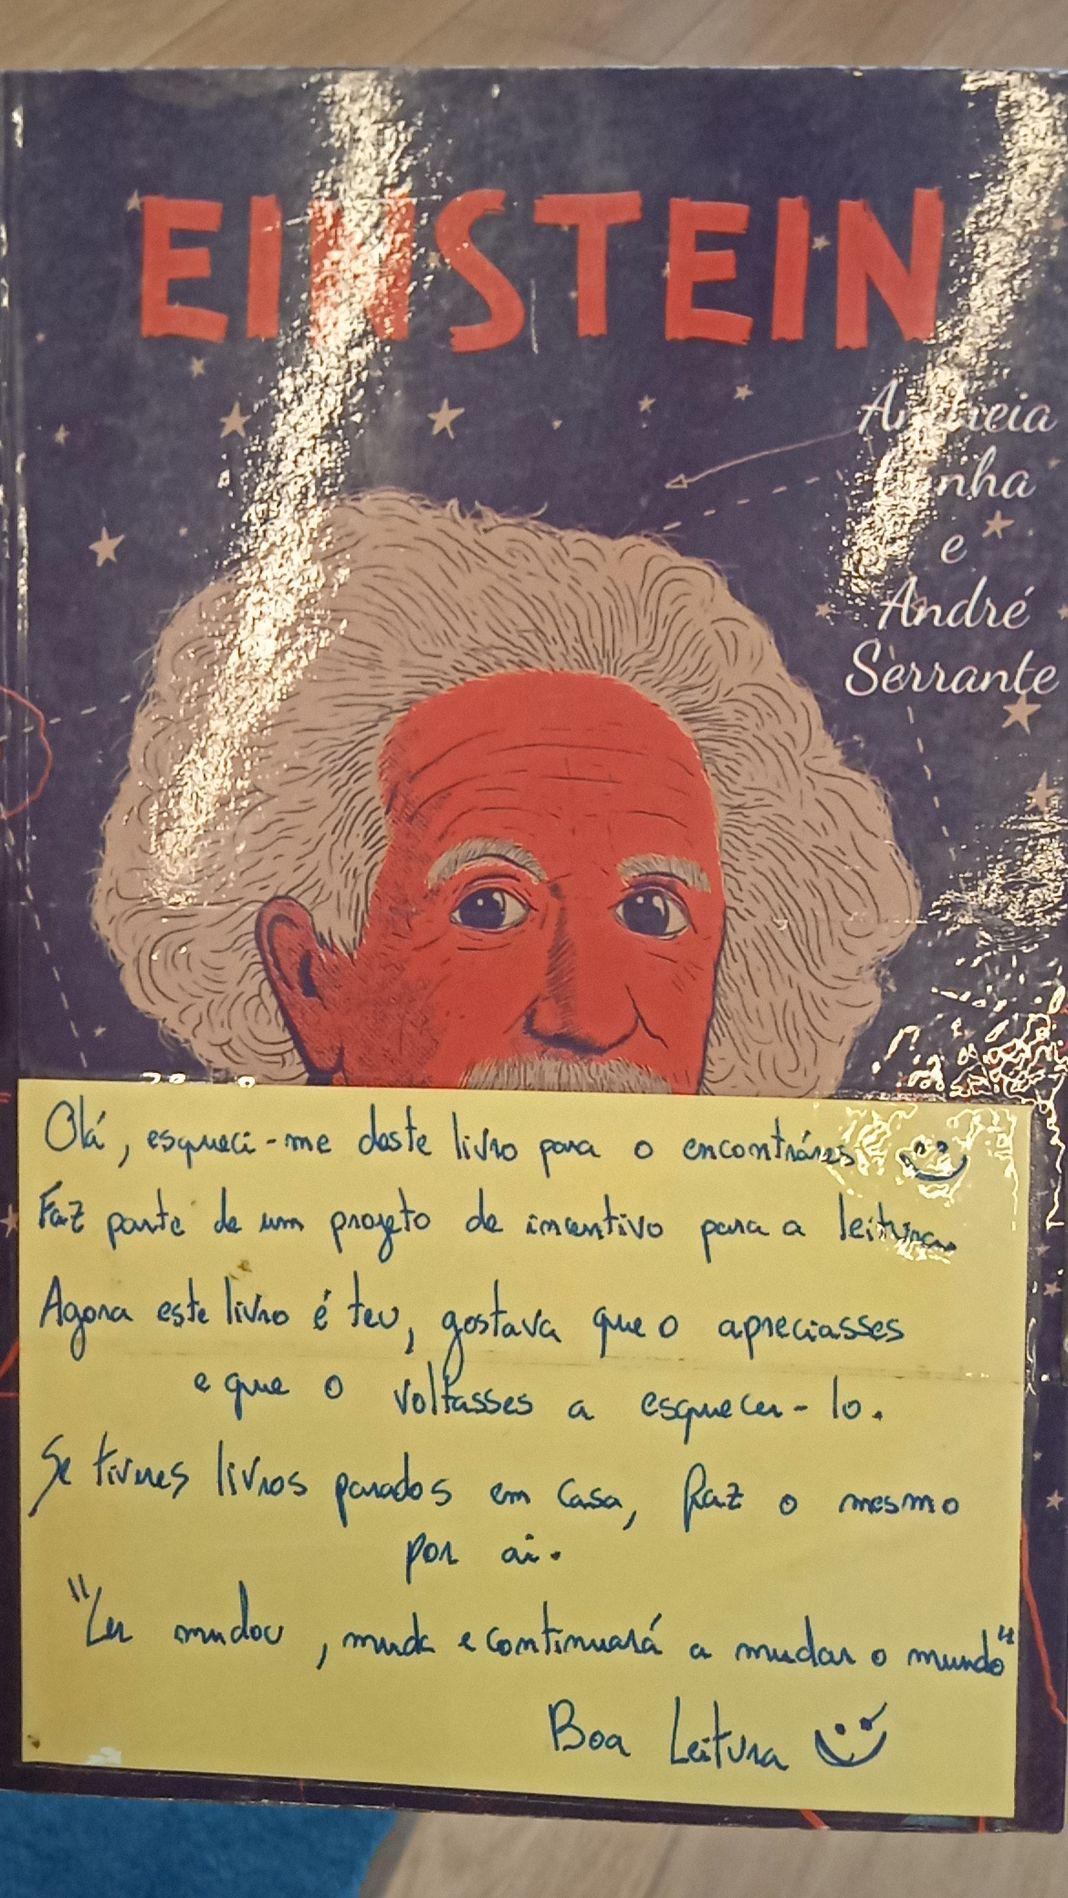 EINSTEIN
Andreia
e
André
Serrante
Olá, esqueci-me deste livro para o encontráres
Faz parte de um projeto de incentivo para a leitura.
Agora este livro é teu, gostava que o apreciasses
e que o voltasses a esquecer-lo.
Se tiveres livros parados em casa, faz o mesmo
por ai.
"Ler mudou, muda e continuará a mudar o mundo"
Boa Leitura